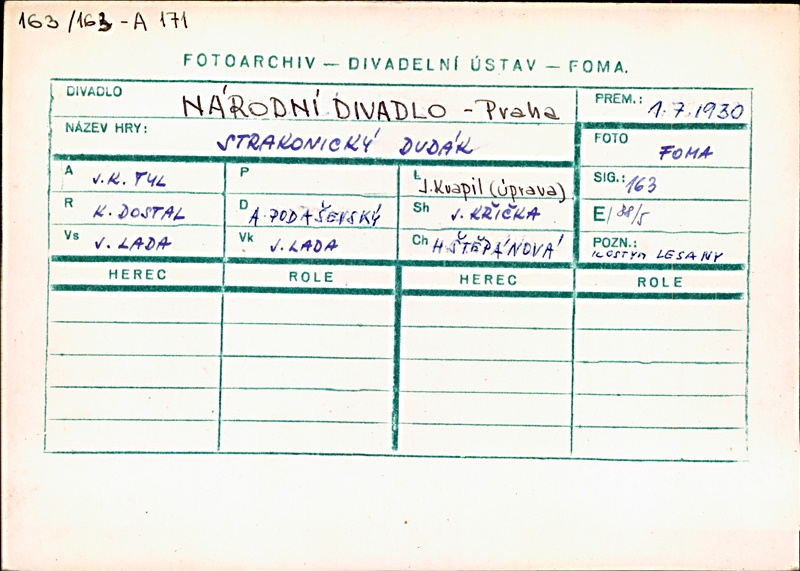 163/163-A 171
FOTOARCHIV — DIVADELNÍ ÚSTAV — FOMA.
DIVADLO NÁRODNÍ DIVADLO - Praha PREM.: 1.7.1930
NÁZEV HRY: STRAKONICKÝ DUDÁK FOTO FOMA
A J.K. TYL P Ł J. Kvapil (úprava) SIG.: 163
R K. DOSTAL D A. PODAŠEVSKÝ Sh J. KŘIČKA E/38/5
Vs J. LADA Vk J. LADA Ch H. ŠTĚPÁNOVÁ POZN.: KOSTYM LESANY
HEREC ROLE HEREC ROLE